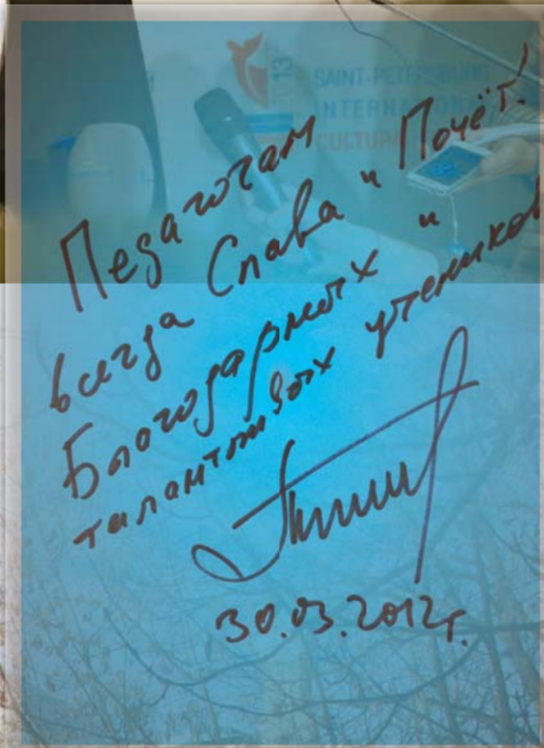 13
SAINT-PETERSBURG
INTERNATIONAL
CULTURAL
Педагогам
всегда Слава и Почёт!
Благодарных и
талантливых учеников
30.03.2012г.